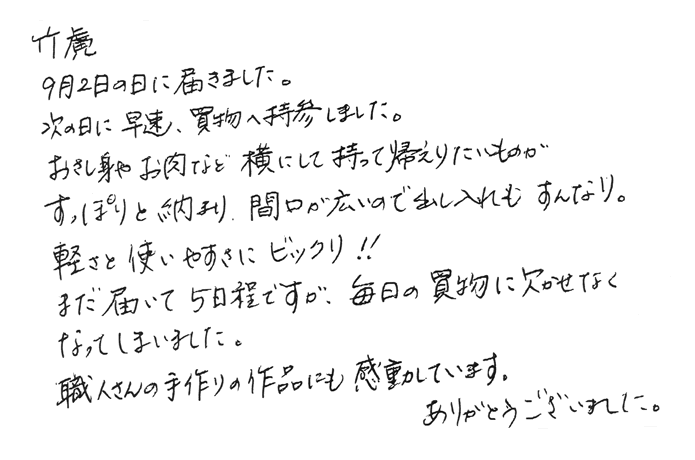 竹虎
9月2日の日に届きました。
次の日に早速、買物へ持参しました。
おさし身やお肉など横にして持って帰えりたいものが
すっぽりと納まり、間口が広いので出し入れもすんなり。
軽さと使いやすさにビックリ!!
まだ届いて5日程ですが、毎日の買物に欠かせなく
なってしまいました。
職人さんの手作りの作品にも感動しています。
ありがとうございました。